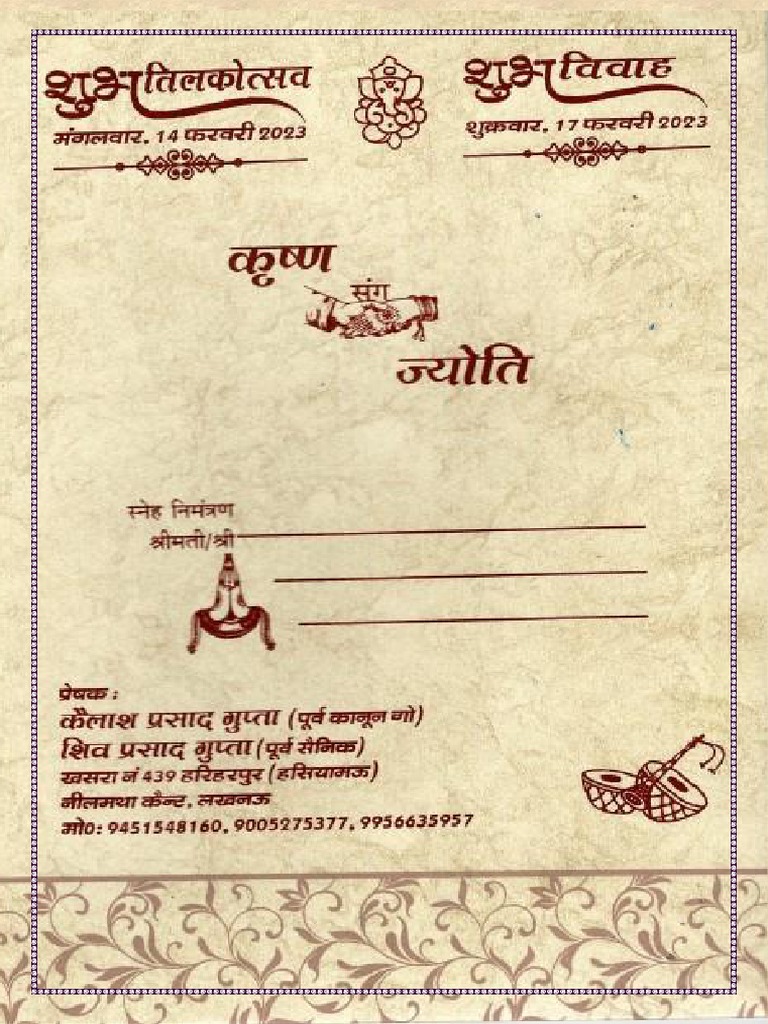 शुभ तिलकोत्सव
मंगलवार, 14 फरवरी 2023
शुभ विवाह
शुक्रवार, 17 फरवरी 2023
कृष्ण
संग
ज्योति
स्नेह निमंत्रण
श्रीमती/श्री
प्रेषक :
कैलाश प्रसाद गुप्ता (पूर्व कानून गो)
शिव प्रसाद गुप्ता (पूर्व सैनिक)
खसरा नं 439 हरिहरपुर (हसियामऊ)
नीलमथा कैन्ट, लखनऊ
मो0: 9451548160, 9005275377, 9956635957